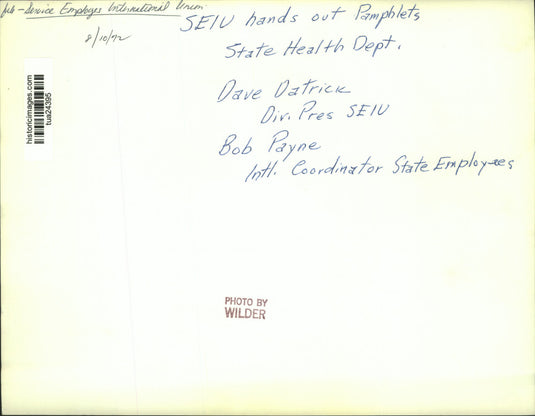 Service Employes International Union
8/10/72
SEIU hands out Pamphlets
State Health Dept.
Dave Datrick
Div. Pres SEIU
Bob Payne
Intl. Coordinator State Employees
historicimages.com
tua24395
PHOTO BY
WILDER